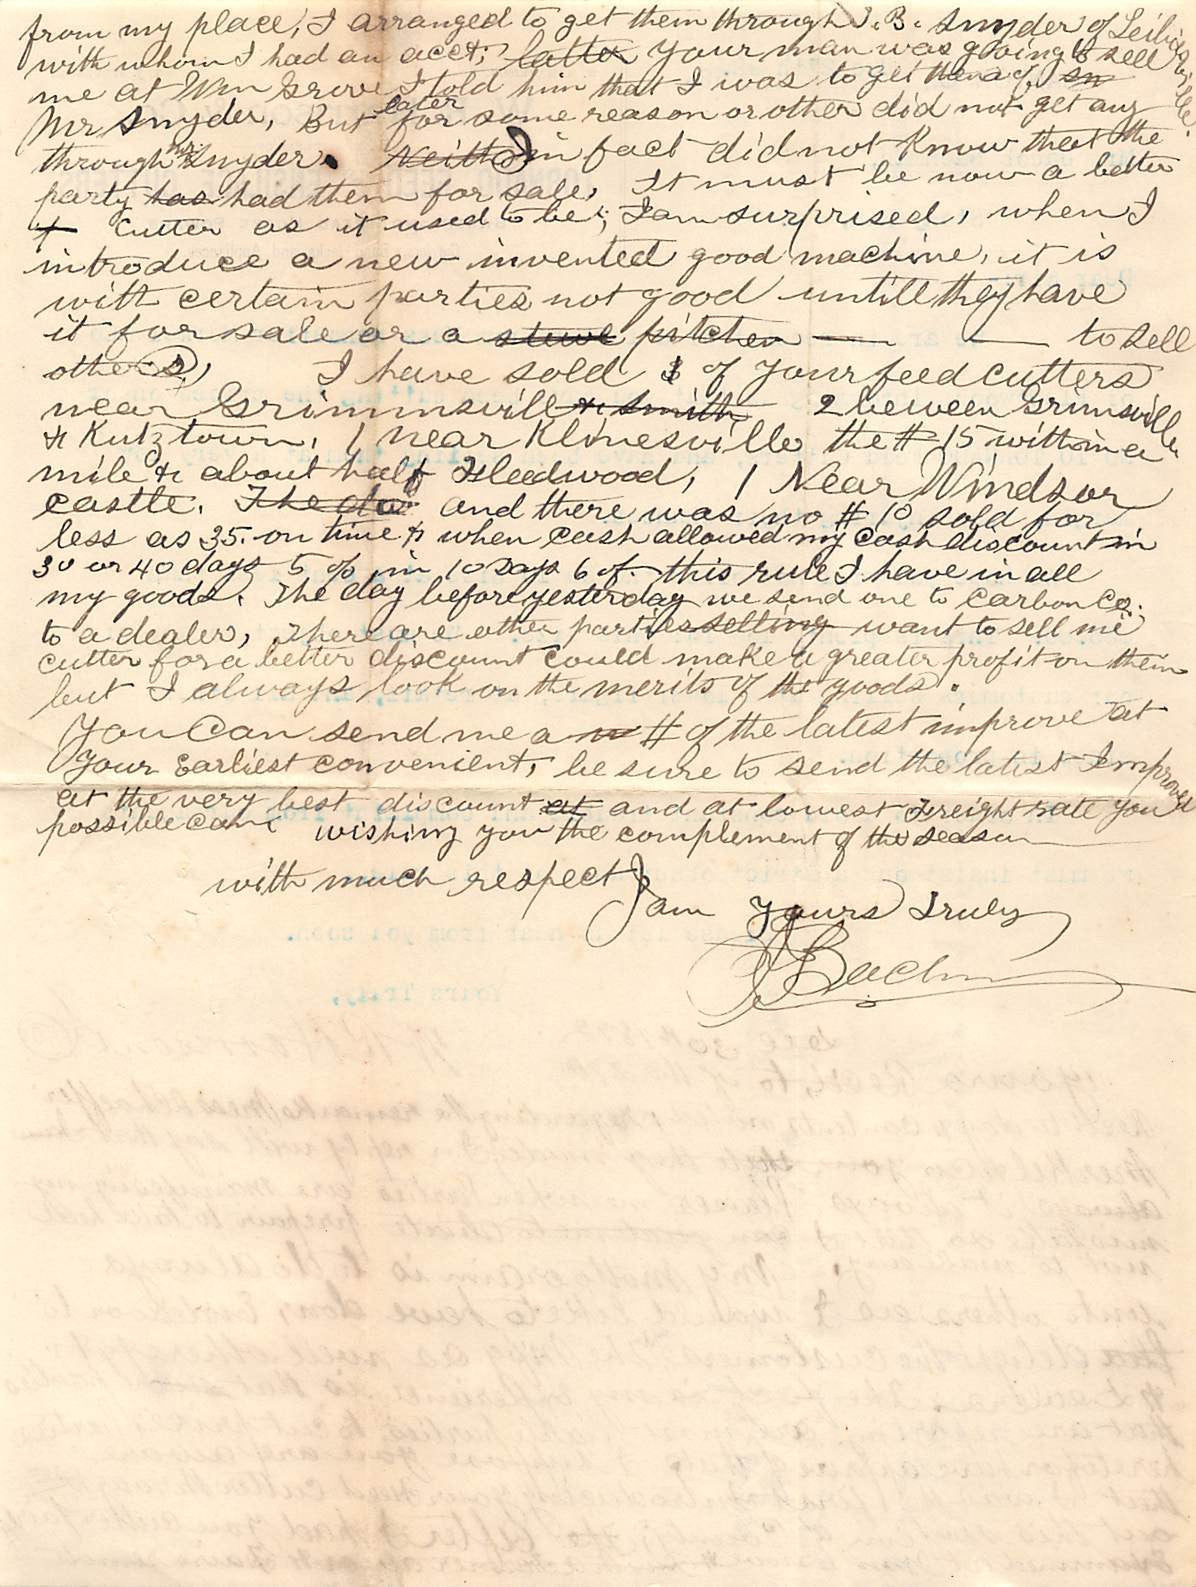 from my place, I arranged to get them through J. B. Snyder of Leibi
with whom I had an acct; latter your man was going to sell
me at Wm Grove I told him that I was to get them of sn
Mr Snyder, But later for some reason or other did not get any
through Mr Snyder. in fact did not Know that the
party has had them for sale, It must be now a better
Cutter as it used to be; I am surprised, when I
introduce a new invented good machine, it is
with certain parties not good untill they have
it for sale or a pitcher to sell
others, I have sold of your feed cutters
near Grimmsvill & Smith 2 beween Grimsville
& Kutztown, 1 near Klinesville the # 15 within a
mile & about half Fleedwood, 1 Near Windsor
castle. The and there was no # 10 sold for
less as 35. on time & when cash allowed my cash discount in
30 or 40 days 5 % in 10 Days 6 of. this rule I have in all
my goods. The day before yesterday we send one to Carbon Co.
to a dealer, There are other parties selling want to sell me
cutter for a better discount could make a greater profit on them
but I always look on the merits of the goods.
You Can send me a # of the latest improve at
Your Earliest convenient, be sure to send the latest Improved
at the very best discount at and at lowest Freight rate you
possible can wishing you the complement of the season
with much respect
I am Yours Truly
Bachm